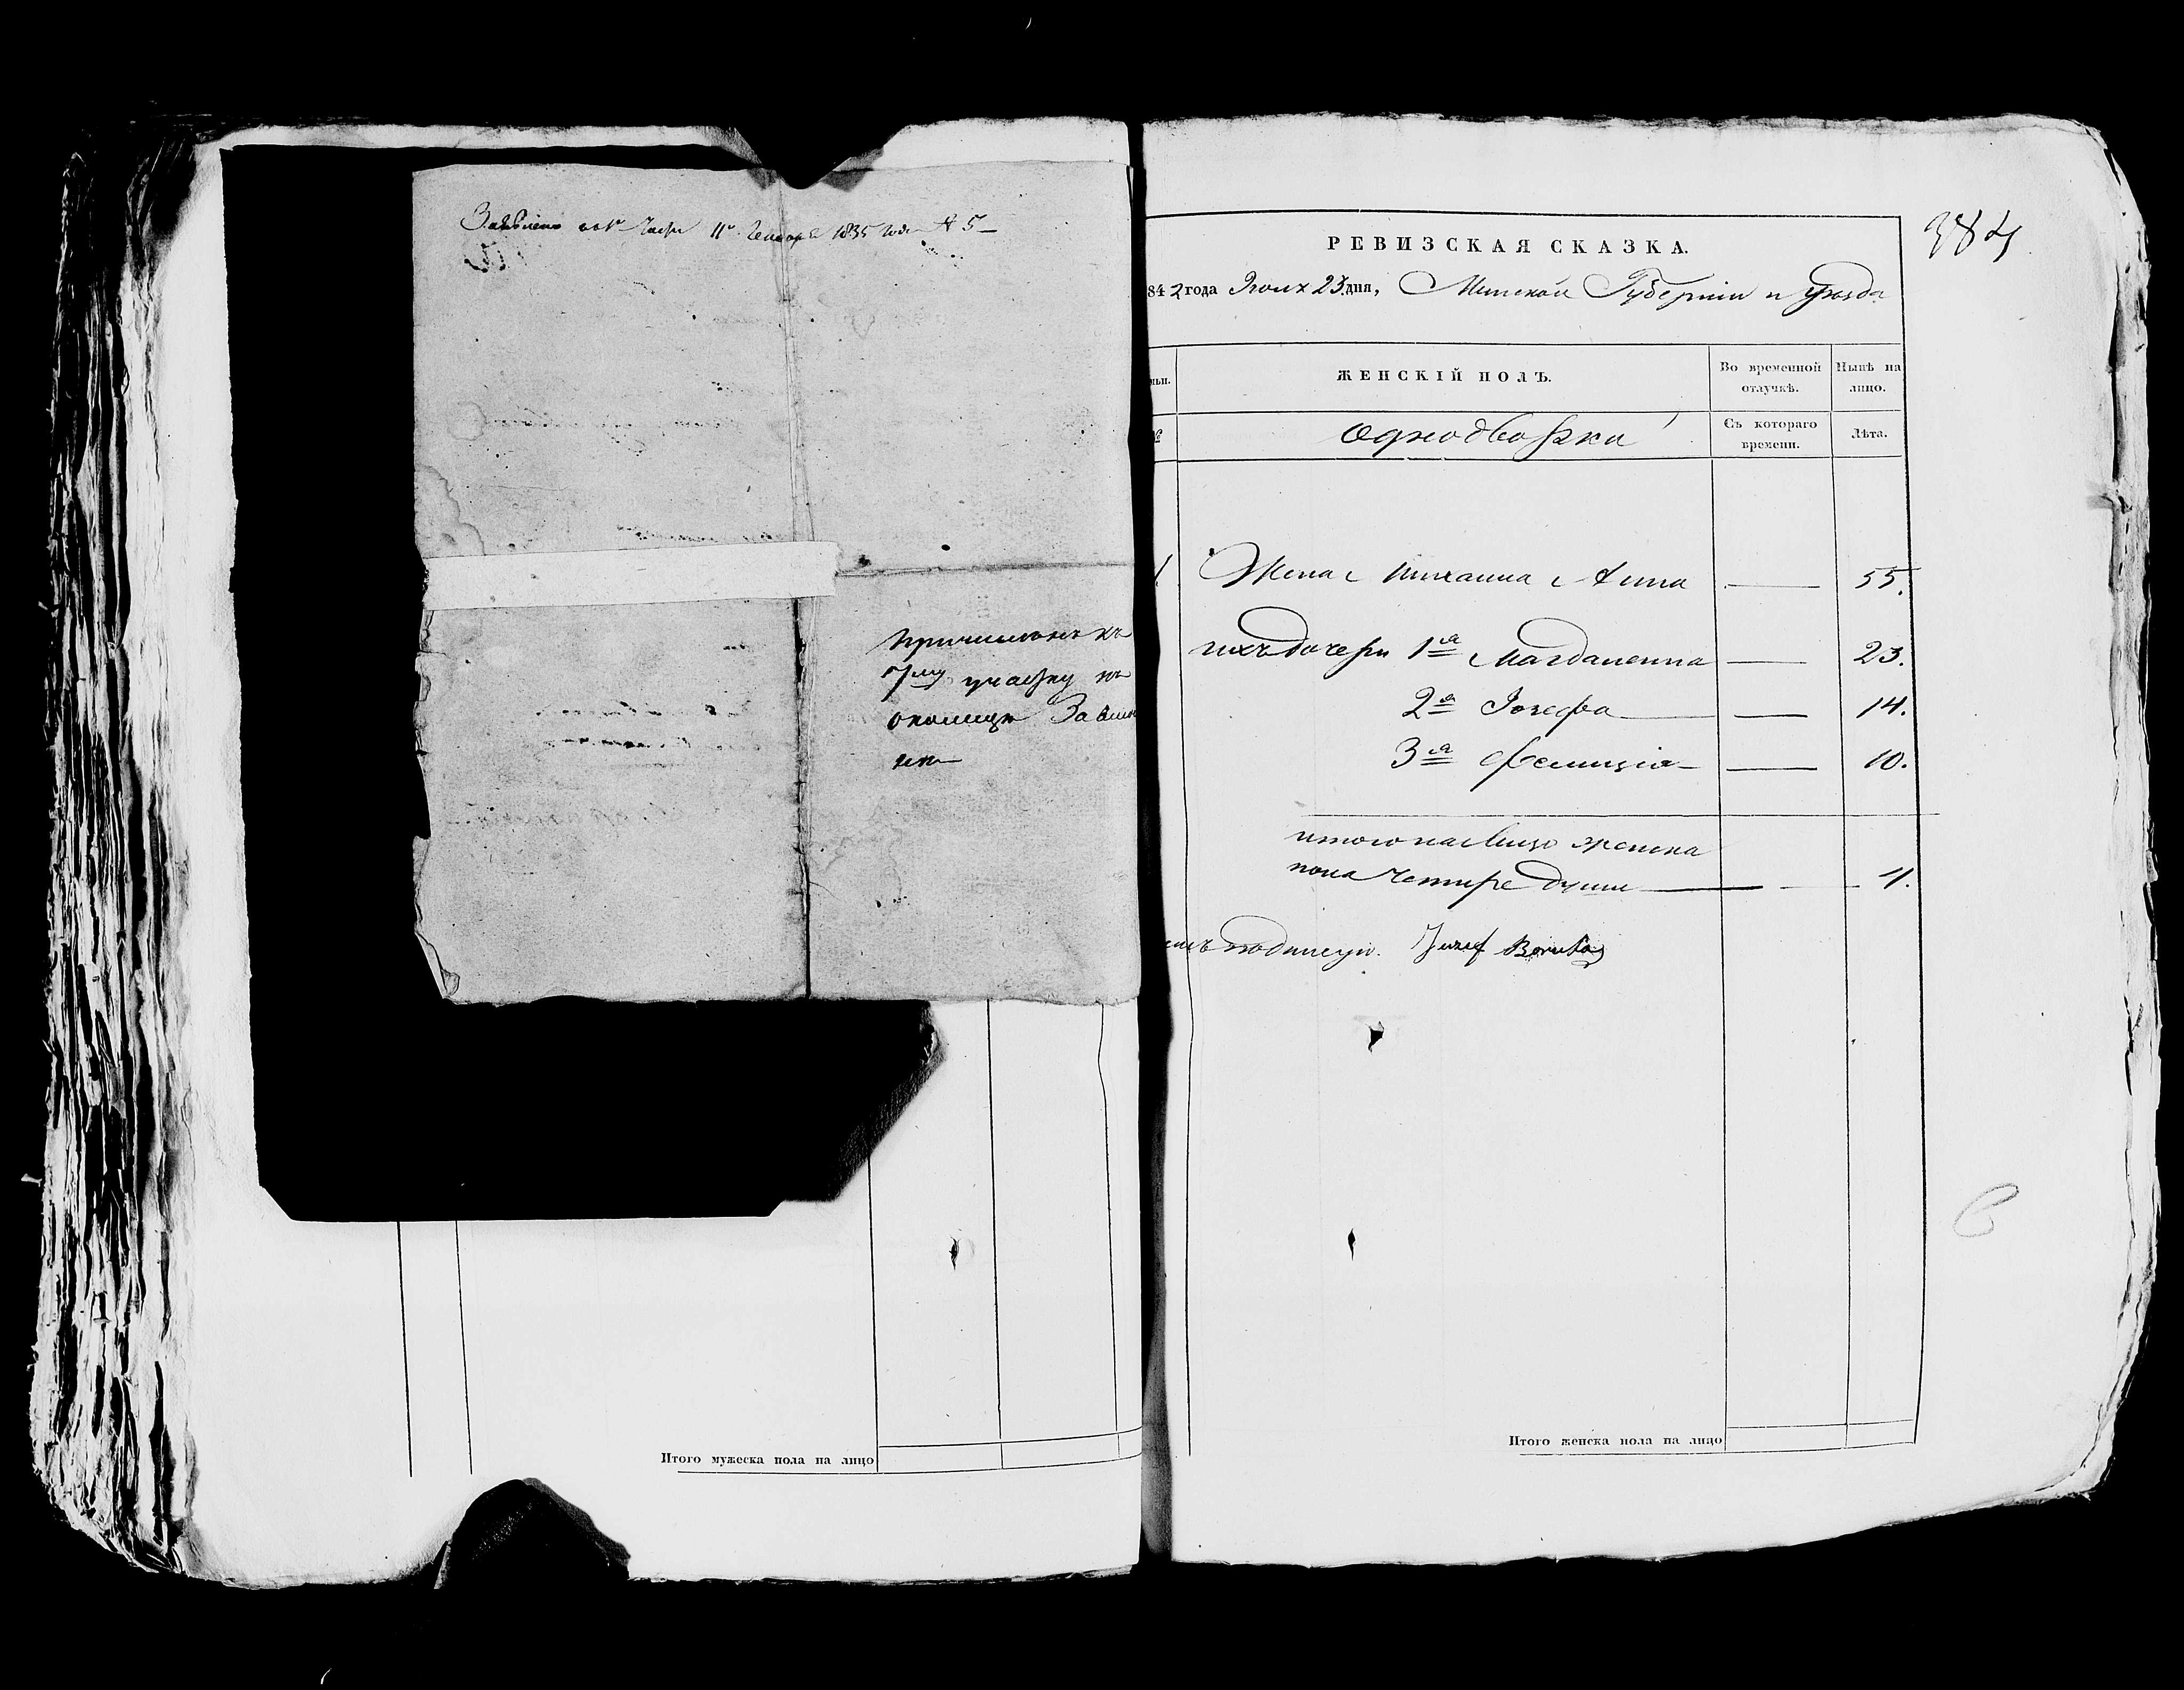 Заявлено во 1й части 11го Генваря 1835 года № 5
причисленъ къ
7му участку въ
околицѣ Завиш
РЕВИЗСКАЯ СКАЗКА.
842 года Июля 23 дня, Минской Губернии и уѣзда
ЖЕНСКІЙ ПОЛЪ.
Во временной отлучкѣ.
Нынѣ на лицо.
однодворки
Съ котораго времени.
Лѣта.
Жена Михаила Анна 55.
ихъ дочери 1я Магдаленна 23.
2я Іозефа 14.
3я Фелиціа 10.
итого на лицо женска
пола четире души 4.
подписуи. Jozef
Итого мужеска пола на лицо
Итого женска пола на лицо
384